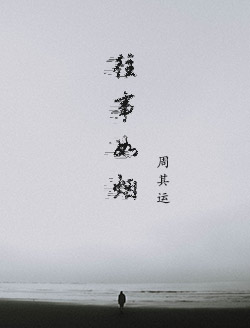 往事如烟
周其运